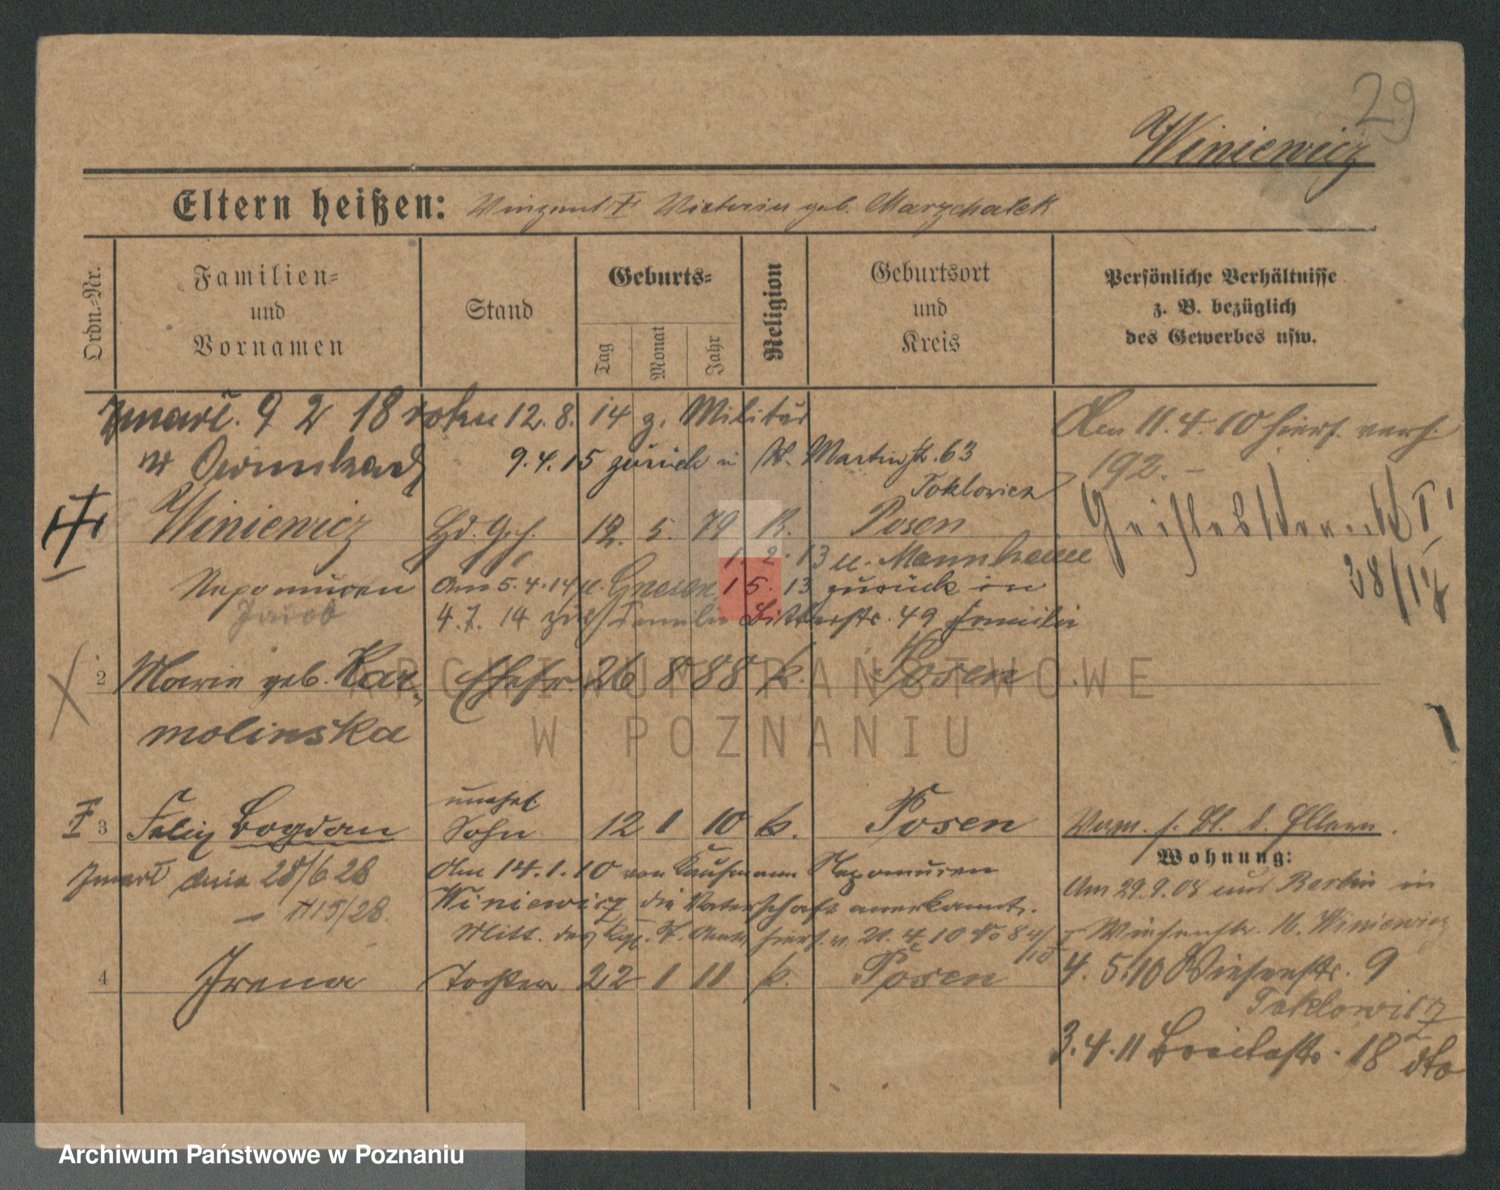 29
Winiewicz
Eltern heißen: Vinzent † Victoria geb. Marzchalek
Ordn.-Nr.
Familien-
und
Vornamen
Stand
Geburts-
Tag
Monat
Jahr
Religion
Geburtsort
und
Kreis
Persönliche Verhältnisse
z. B. bezüglich
des Gewerbes usw.
zmarł. 9 2 18 roku 12.8.14 z. Militär
w Owinskach 9.4.15 zurück in St. Martinstr. 63
Toklowicz
Am 11.4.10 hier verh.
192.-
Winiewicz Hd. Gh. 12. 5. 79 K. Posen
1.2.13 u. Mannheim
28/17
Nepomucen Am 5.4.14 u. Gnesen 15. 13 zurück in
Jacob 4.7.14 Ritterstr. 49 Familie
2 Marie geb. Kar- Ehefr. 26 8 88 k. Posen
molinska
unehel.
3 Felix Bogdan Sohn 12 1 10 k. Posen
d. Eltern.
Wohnung:
zmarł dnia 28/6 28 Am 14.1.10 von Kaufmann Nepomucen
Am 29.9.08 aus Berlin in
15/28 Winiewicz die Vaterschaft anerkannt.
Wiesenstr. 16. Winiewicz
Mitt. des 21. 4. 10
4 Irena Tochter 22 1 11 k. Posen
4. 5.10 Wiesenstr. 9
Toklowicz
3.4.11 Breitestr. 18 dto
ARCHIWUM PAŃSTWOWE
W POZNANIU
Archiwum Państwowe w Poznaniu